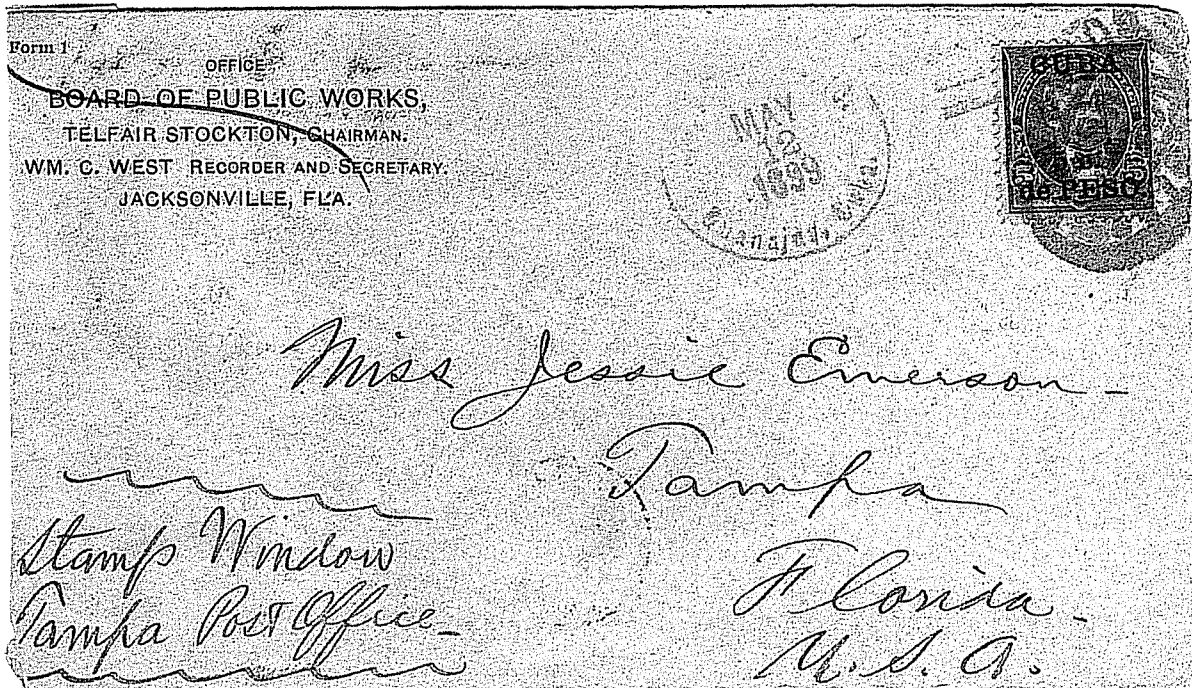 Form 1
OFFICE
BOARD OF PUBLIC WORKS,
TELFAIR STOCKTON, CHAIRMAN.
WM. C. WEST RECORDER AND SECRETARY.
JACKSONVILLE, FLA.
MAY
1899
Guanajay, Cuba.
CUBA
de PESO
Miss Jessie Emerson
Tampa
Florida
U. S. A.
Stamp Window
Tampa Post Office